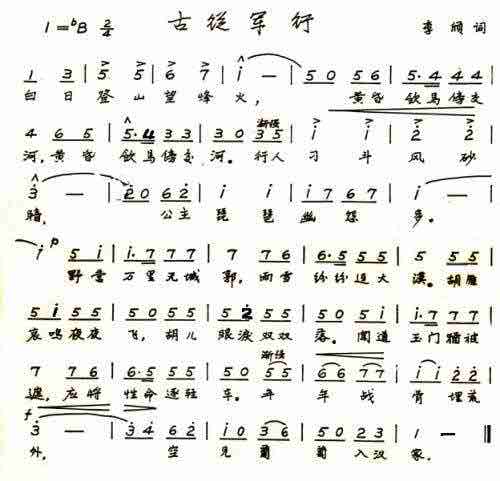 1=♭B 2/4 古从军行 李颀词
1 3 | 5 5 | 6 7 | i — | 5 0 5 6 | 5·4 4 4 |
白日登山望烽火， 黄昏饮马傍交
4 6 5 | 5·4 3 3 | 3 0 3 5 | i i | 2 2 |
渐强
河，黄昏饮马傍交河。行人刁斗风砂
3 — | 2 0 6 2 | i i | i 7 6 7 | 6 — |
暗， 公主琵琶幽怨多。
i p 5 i | i·7 7 7 | 7 7 6 | 6·5 5 5 | 5 5 5 |
野营万里无城郭，雨雪纷纷连大漠。胡雁
5 i 5 5 | 5 0 5 5 | 5 2 5 5 | 5 0 5 i | i·7 7 7 |
哀鸣夜夜飞，胡儿眼泪双双落。闻道玉门犹被
7 7 6 | 6·5 5 5 | 5 0 5 5 | 6 6 7 7 | i i 2 2 |
渐强
遮，应将性命逐轻车。年年战骨埋荒
f 3 — | 3 4 6 2 | i 0 3 6 | 5 0 2 3 | 1 — ‖
外， 空见葡萄入汉家。